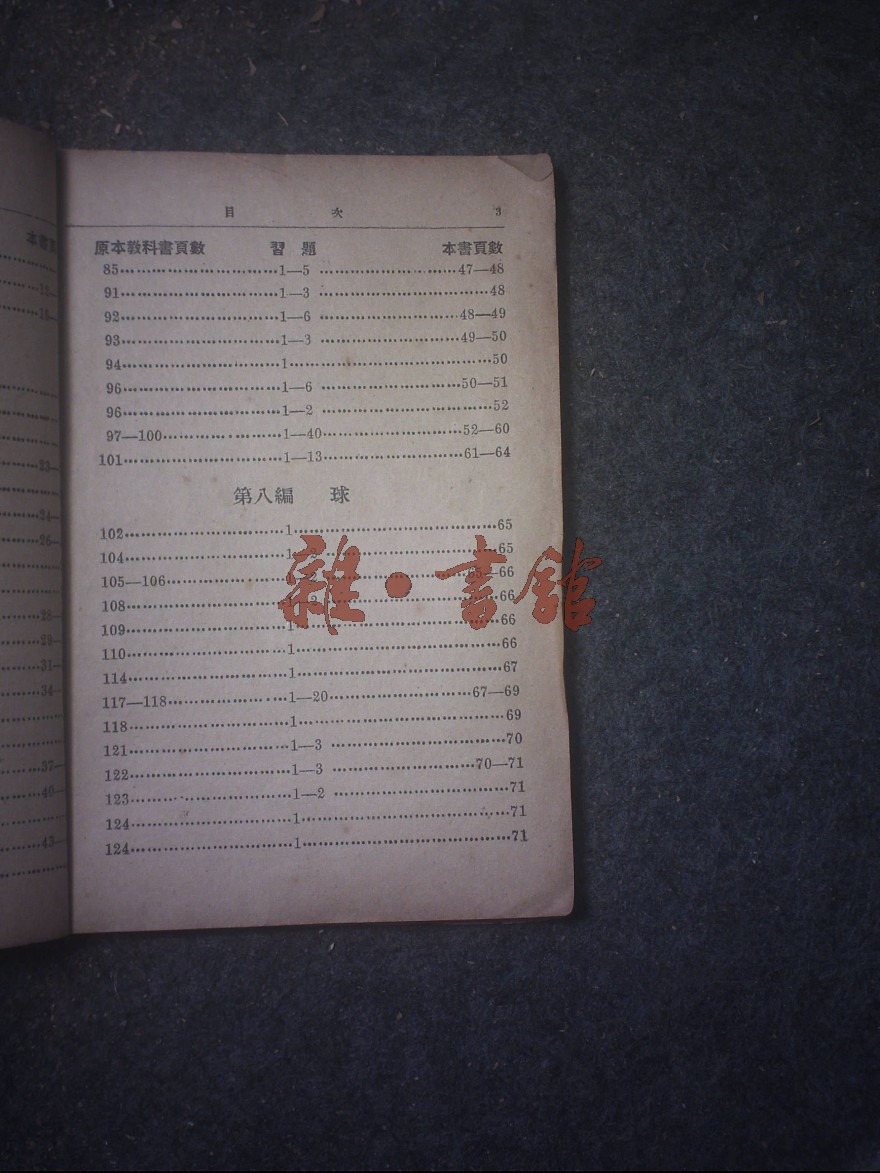 目 次 3
原本教科書頁數 習題 本書頁數
85……………………………1—5 …………………………47—48
91……………………………1—3 ………………………………48
92……………………………1—6 …………………………48—49
93……………………………1—3 …………………………49—50
94……………………………1……………………………………50
96……………………………1—6 …………………………50—51
96……………………………1—2 ………………………………52
97—100……………………1—40…………………………52—60
101…………………………1—13…………………………61—64
第八編 球
102…………………………1……………………………………65
104…………………………1……………………………………65
105—106………………………………………………………65—66
108……………………………………………………………………66
109…………………………1……………………………………66
110…………………………1……………………………………66
114…………………………1……………………………………67
117—118……………………1—20…………………………67—69
118…………………………1……………………………………69
121…………………………1—3 ………………………………70
122…………………………1—3 …………………………70—71
123…………………………1—2 ………………………………71
124…………………………1……………………………………71
124…………………………1……………………………………71
雜·書館
本書頁
15—
16—
23—
24—
26—
28—
29—
31—
34—
37—
40—
43—